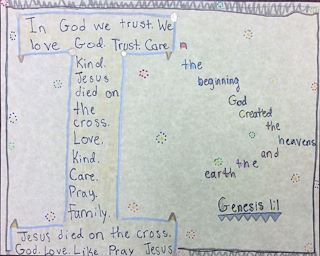 In God we trust. We
love God. Trust. Care
Kind.
Jesus
died on
the
cross.
Love.
Kind.
Care.
Pray.
Family.
Jesus died on the cross.
God. Love. Like Pray Jesus
In
the
beginning
God
created
the
heavens
and
the
earth
Genesis 1:1